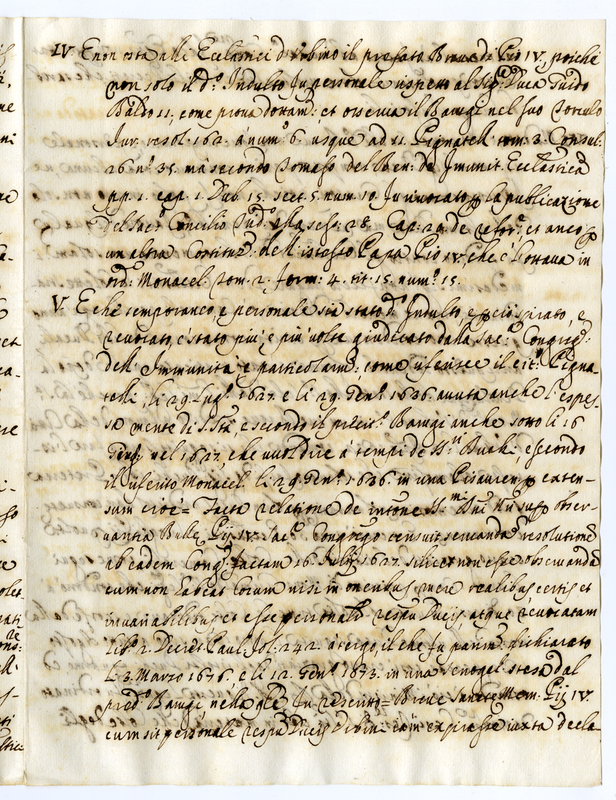 IV. E non osta alli Ecclastici d'Urbino il prefato Breve di Pio IV, poiche
non solo il d.º Indulto fu personale rispetto al Sig.r Duca Guido
Baldo II. come prova doram: et osserva il Barugi nel suo
Iur. resol. 162. à num.º 6. usque ad 11. Pignatell. tom. 3. Consul.
26 nº 35. mà secondo Tomaso del Ben: de Immunit. Ecclastica
pp. 1. cap. 1. Dub. 15. sect. 5. num. 10. fu rivocato p la publicazione
del Sac.º Concilio Trid.º alla sess. 25. Cap. 20. de refor. et anco p
un altra Costituz.e dell'istesso Papa Pio IV, che è
ord: Monacel. tom. 2. form: 4. tit. 15. num.º 15.
V. E che temporaneo, e personale sia stato d.º Indulto, e perciò spirato, e
revocato, è stato più, e più volte giudicato dalla Sac.a Congreg.e
dell'Immunità, e particolarm.e come riferisce il cit.º Pigna
telli, li 29. Lug.º 1627. e li 29. Gen.º 1636. avuta anche l'espres
sa mente di S. Stà e secondo il Barugi anche sotto li 16
nel 1627, che vuol dire à tempi de e secondo
il riferito Monacel. li 29. Gen.º 1636. in una Pisauren p exten-
sum cioè = Facta relatione de intone S.mi Dni Nri sup obser-
vantia Bullę Pij IV. Sac.a Congreg.o censuit servanda resolutione
ab eadem Cong. factam 16. Julij 1627. scilicet non esse observanda
cum non habeat locum nisi in oneribus mere realibus certis et
invariabilibus, et esse personale respu Ducis, atque revocatam
lib. 2. Decret. Paul. fol. 242. à tergo, il che fu parim.e dichiarato
li 3. Marzo 1676. e li 12. Gen.º 1673. in una Senogal. stesa dal
pred.º Barugi nella qle fu rescritto = Breve Sancte Mem. Pij IV.
cum sit personale respu Ducis Urbini eam expirasse iuxta decla-